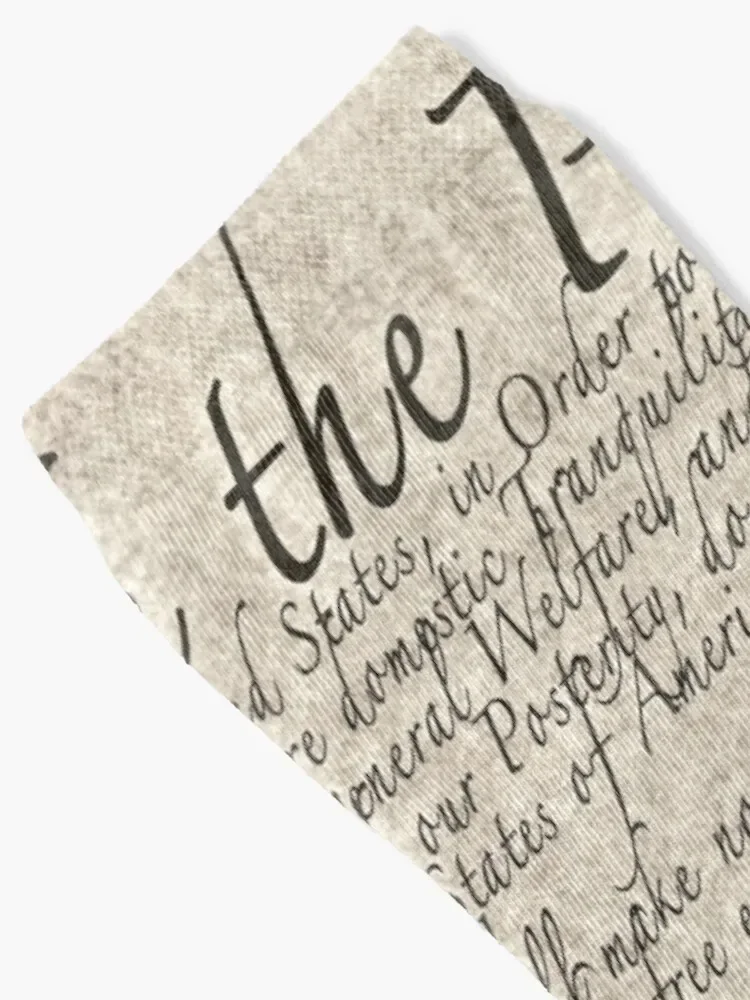 the
States, in Order to
domestic Tranquilit
eneral Welfare, and
our Posterity, do
States of Ameri
make no
free